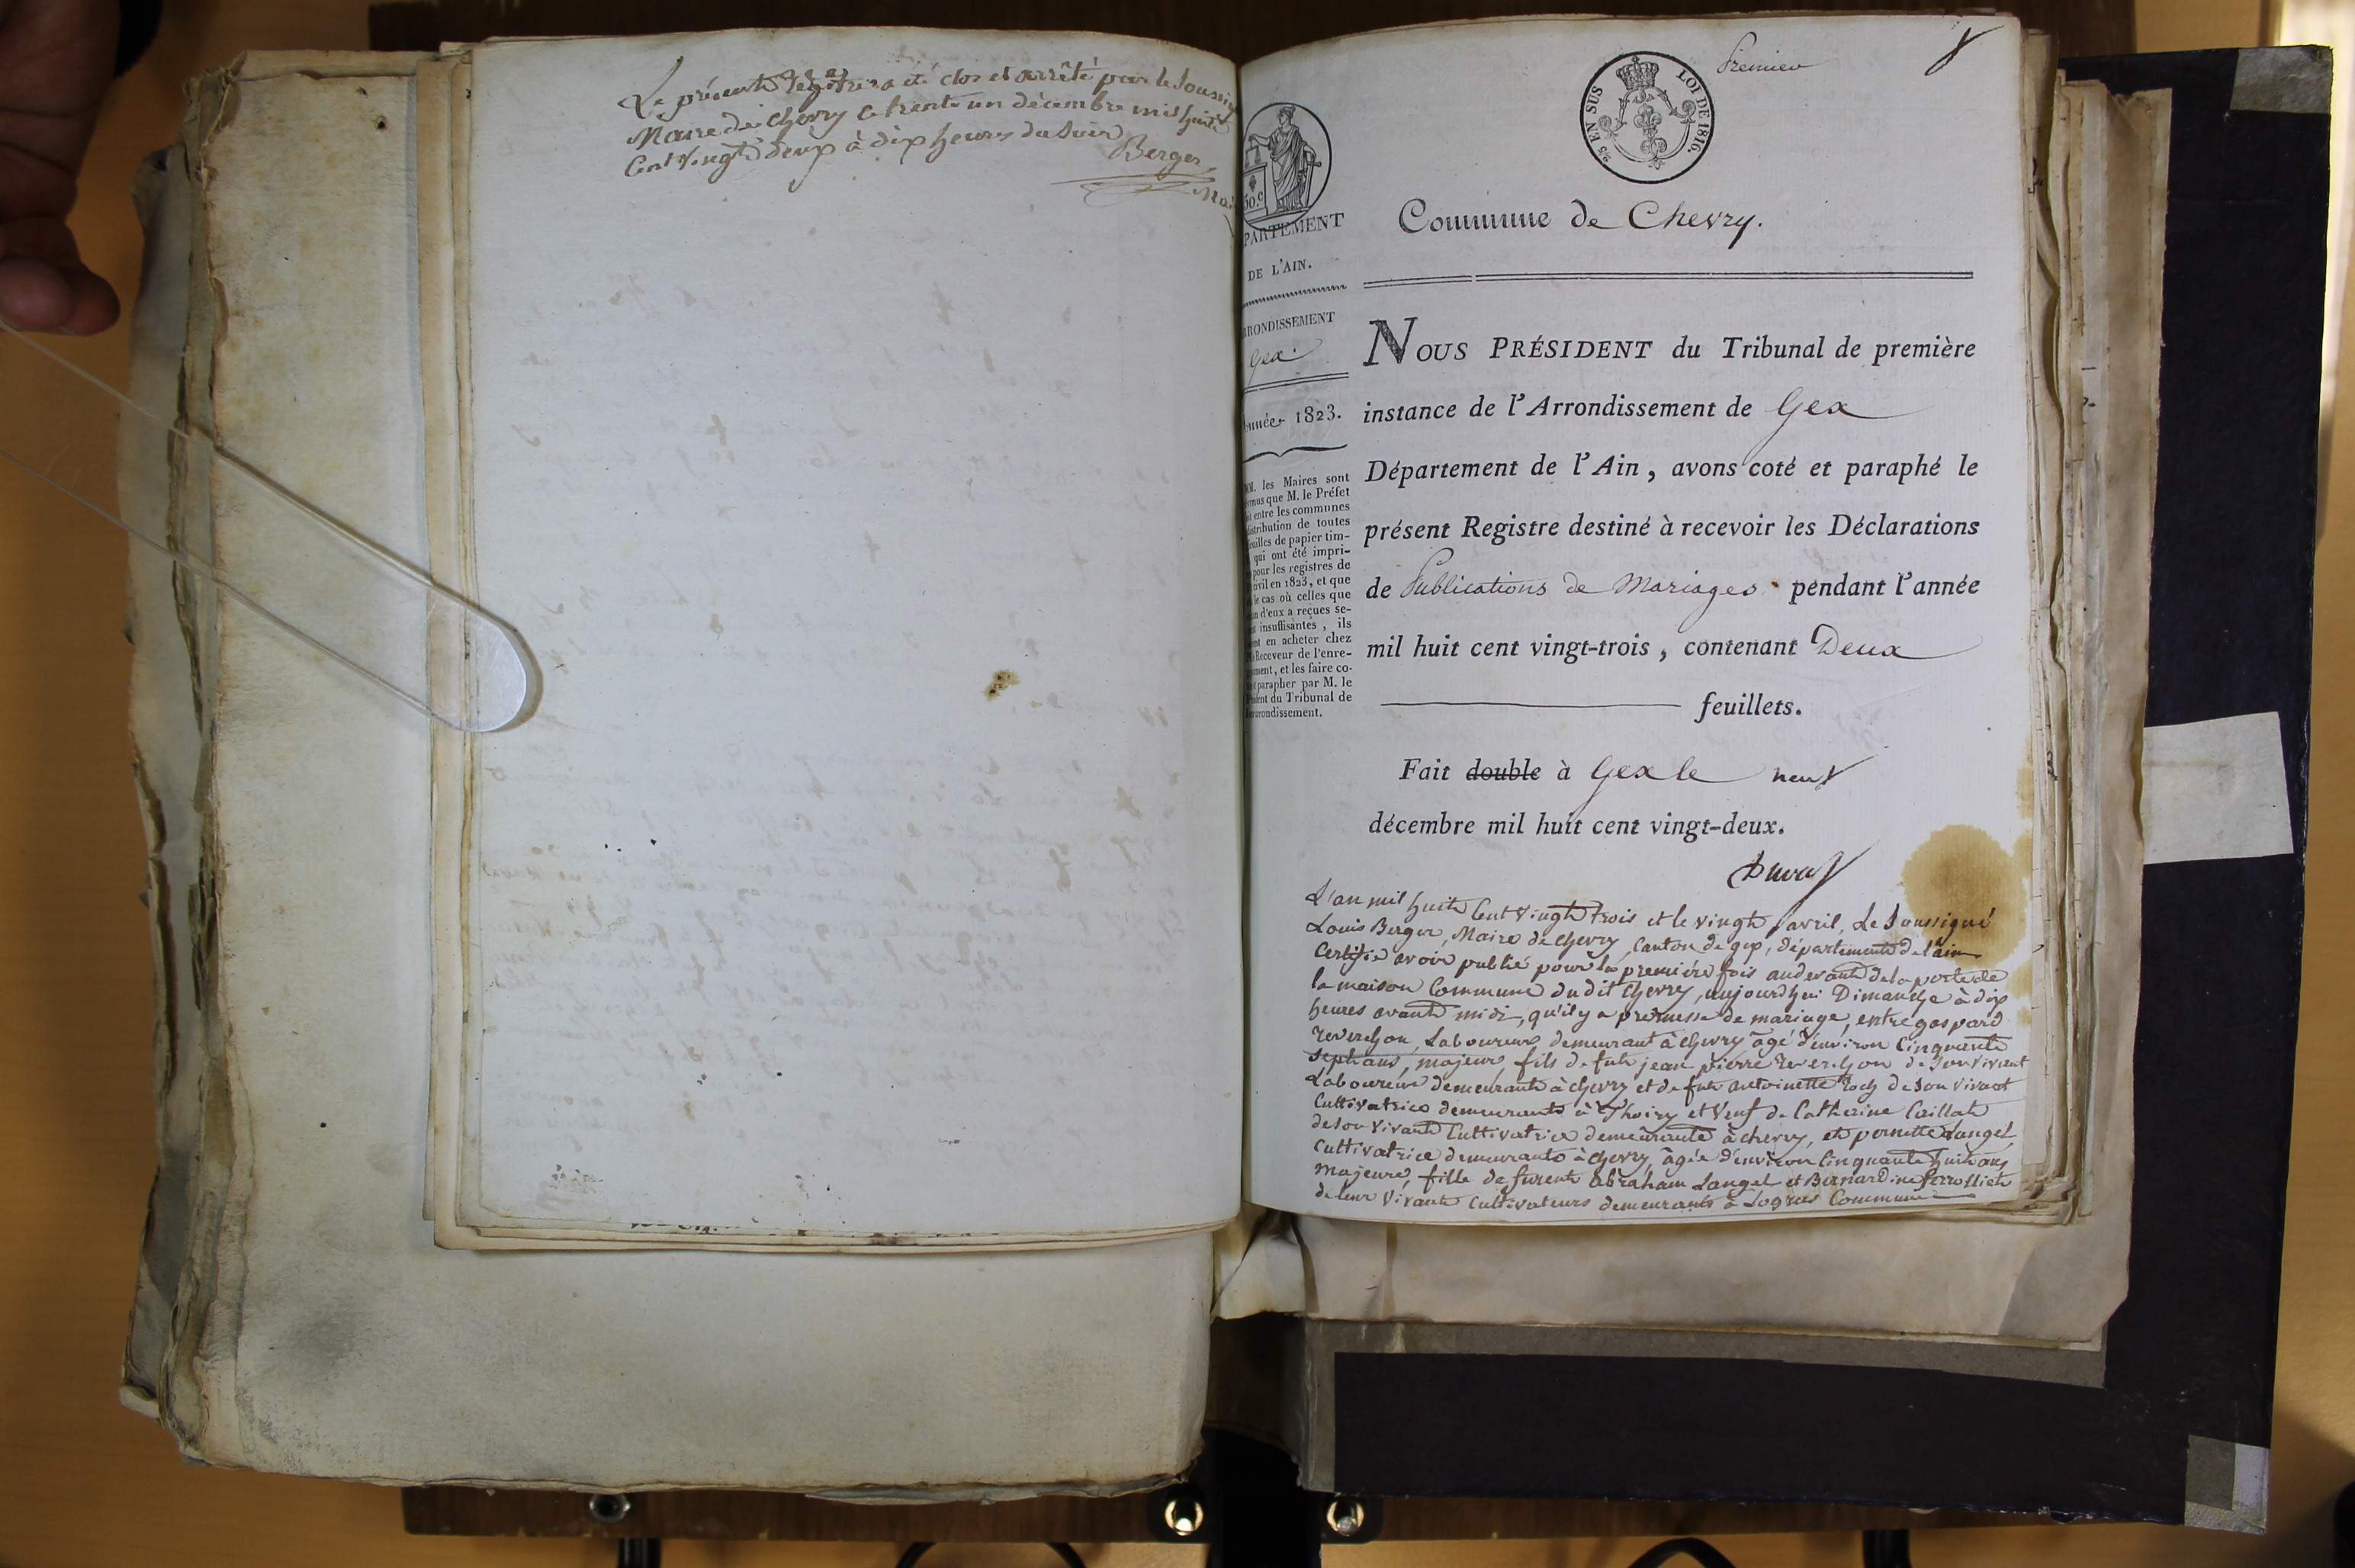 Le présent Registre a été clos et arrêté par le Soussig
Maire de Chevry le trente un décembre mil huit
Cent Vingt deux à dix heures du Soir
Berger
Mai
Premier
25 EN SUS LOI DE 1816.
50.C
PARTEMENT
DE L'AIN.
RRONDISSEMENT
Gex.
Année 1823.
MM. les Maires sont
que M. le Préfet
entre les communes
distribution de toutes
feuilles de papier tim-
qui ont été impri-
pour les registres de
civil en 1823, et que
le cas où celles que
d'eux a reçues se-
insuffisantes, ils
en acheter chez
Receveur de l'enre-
ment, et les faire co-
parapher par M. le
ident du Tribunal de
arrondissement.
Commune de Chevry.
NOUS PRÉSIDENT du Tribunal de première
instance de l'Arrondissement de Gex
Département de l'Ain, avons coté et paraphé le
présent Registre destiné à recevoir les Déclarations
de Publications de Mariages pendant l'année
mil huit cent vingt-trois, contenant Deux
feuillets.
Fait double à Gex le neuf
décembre mil huit cent vingt-deux.
L'an mil huit Cent Vingt trois et le vingt avril, Le Soussigné
Louis Berger, Maire de Chevry, Canton de gex, département de l'ain
Certifie avoir publié pour la première fois audevant de la porte de
la maison Commune du dit Chevry, aujourdhui Dimanche à dix
heures avant midi, qu'il y a promesse de mariage, entre gaspard
Reverchon, Laboureur demeurant à Chevry âgé d'environ Cinquante
Sept ans, majeur, fils de fut jean pierre Reverchon de Son Vivant
Laboureur demeurant à chevry et de fut antoinette Roch de Son Vivant
Cultivatrice demeurante à Thoiry et Veuf de Catherine Caillat
de son Vivant Cultivatrice demeurante à chevry, et pernette Langel
Cultivatrice demeurante à chevry, âgée d'environ Cinquante huit ans
Majeure, fille de furent abraham Langel et Bernardine
de leur Vivant Cultivateurs demeurants à Logras Commune